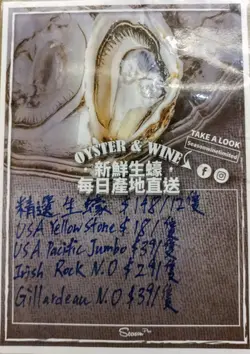 OYSTER & WINE
TAKE A LOOK
Seasonwinelimited
新鮮生蠔
每日產地直送
精選生蠔 $148/12隻
USA Yellow Stone $18/隻
USA Pacific Jumbo $39/隻
Irish Rock N.O $29/隻
Gillardeau N.O $39/隻